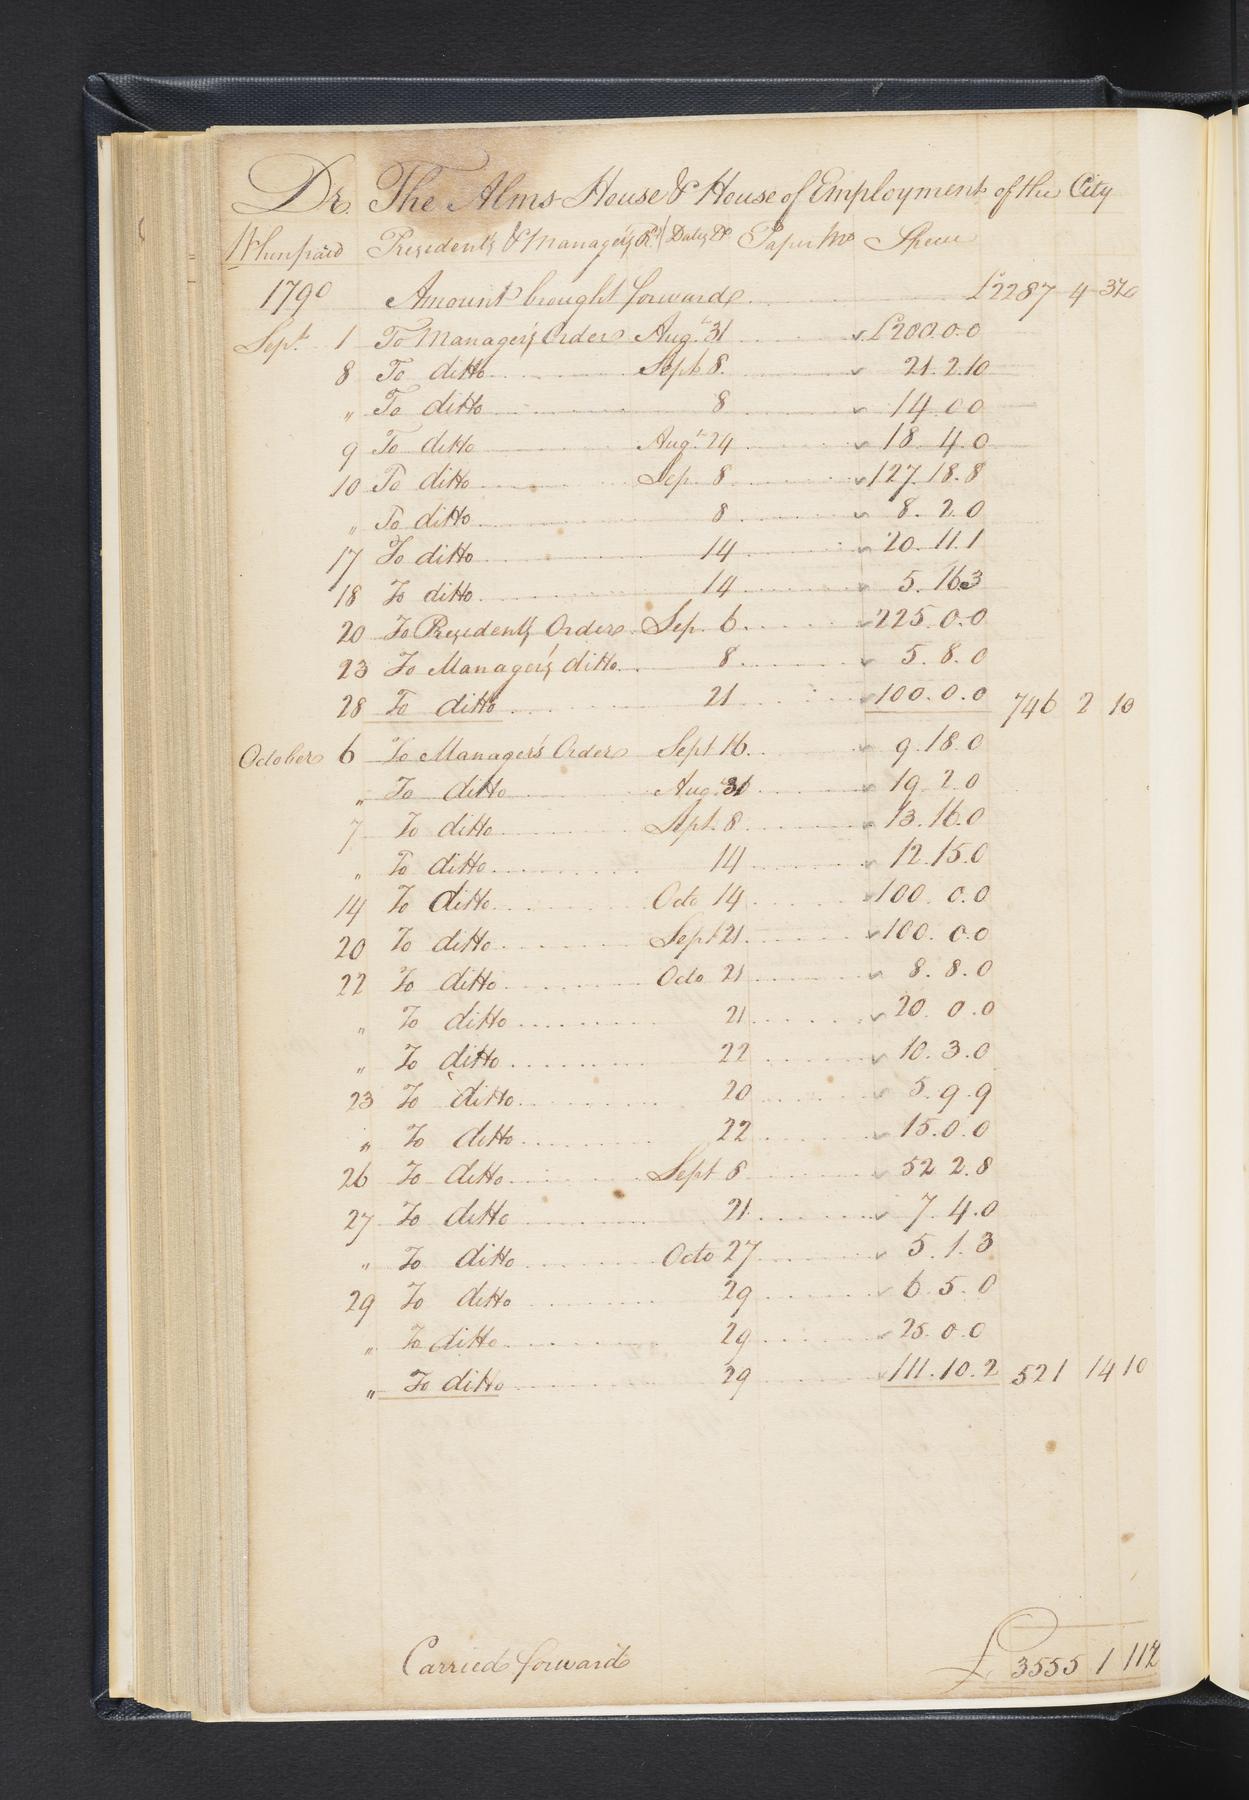 Dr. The Alms House & House of Employment of the City
When paid Presidents & Managers Dates &c Paper Mo Specie
1790 Amount brought forward £2287 4 3½
Sept. 1 To Managers Order Aug. 31 £200.0.0
8 To ditto Sept 8. 21.2.10
" To ditto 8 14.0.0
9 To ditto Aug. 24 18.4.0
10 To ditto Sep. 8 127.18.8
" To ditto 8 8.2.0
17 To ditto 14 20.11.1
18 To ditto 14 5.16.3
20 To Presidents Order Sep. 6 225.0.0
23 To Manager's ditto 8 5.8.0
28 To ditto 21 100.0.0 746 2 10
October 6 To Manager's Order Sept 16 9.18.0
" To ditto Aug. 31 19.2.0
7 To ditto Sept. 8 13.16.0
" To ditto 14 12.15.0
14 To ditto Octo 14 100.0.0
20 To ditto Sept 21 100.0.0
22 To ditto Octo 21 8.8.0
" To ditto 21 20.0.0
" To ditto 22 10.3.0
23 To ditto 20 5.9.9
" To ditto 22 15.0.0
26 To ditto Sept 8 52.2.8
27 To ditto 21 7.4.0
" To ditto Octo 27 5.1.3
29 To ditto 29 6.5.0
" To ditto 29 25.0.0
" To ditto 29 111.10.2 521 14 10
Carried forward £ 3555 1 11½